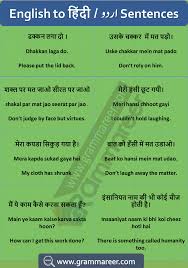 English to हिंदी / اردو Sentences
ढक्कन लगा दो ।
Dhakkan laga do.
Please put the lid back.
उसके चक्कर में मत पड़ो।
Uske chakkar mein mat pado.
Don't rely on him.
शक्ल पर मत जाओ सीरत पर जाओ
shakal par mat jao seerat par jao
Don't judge by face but virtues.
मेरी हंसी छूट गयी।
Meri hansi chhoot gayi
I couldn't hold laughing.
मेरा कपडा सिकुड़ गया है।
Mera kapda sukad gaya hai
My cloth has shrunk.
बात को हंसी में मत उडाओ।
Baat ko hansi mein mat udao.
Don't laugh away the matter.
मैं ये काम कैसे करला सकता हूँ?
Main ye kaam kaise karka sakta hoon?
How can I get this work done?
इंसानियत नाम की भी कोई चीज़ होती है।
Insaaniyat naam ki bhi koi cheez hoti hai
There is something called humanity too.
www.grammareer.com